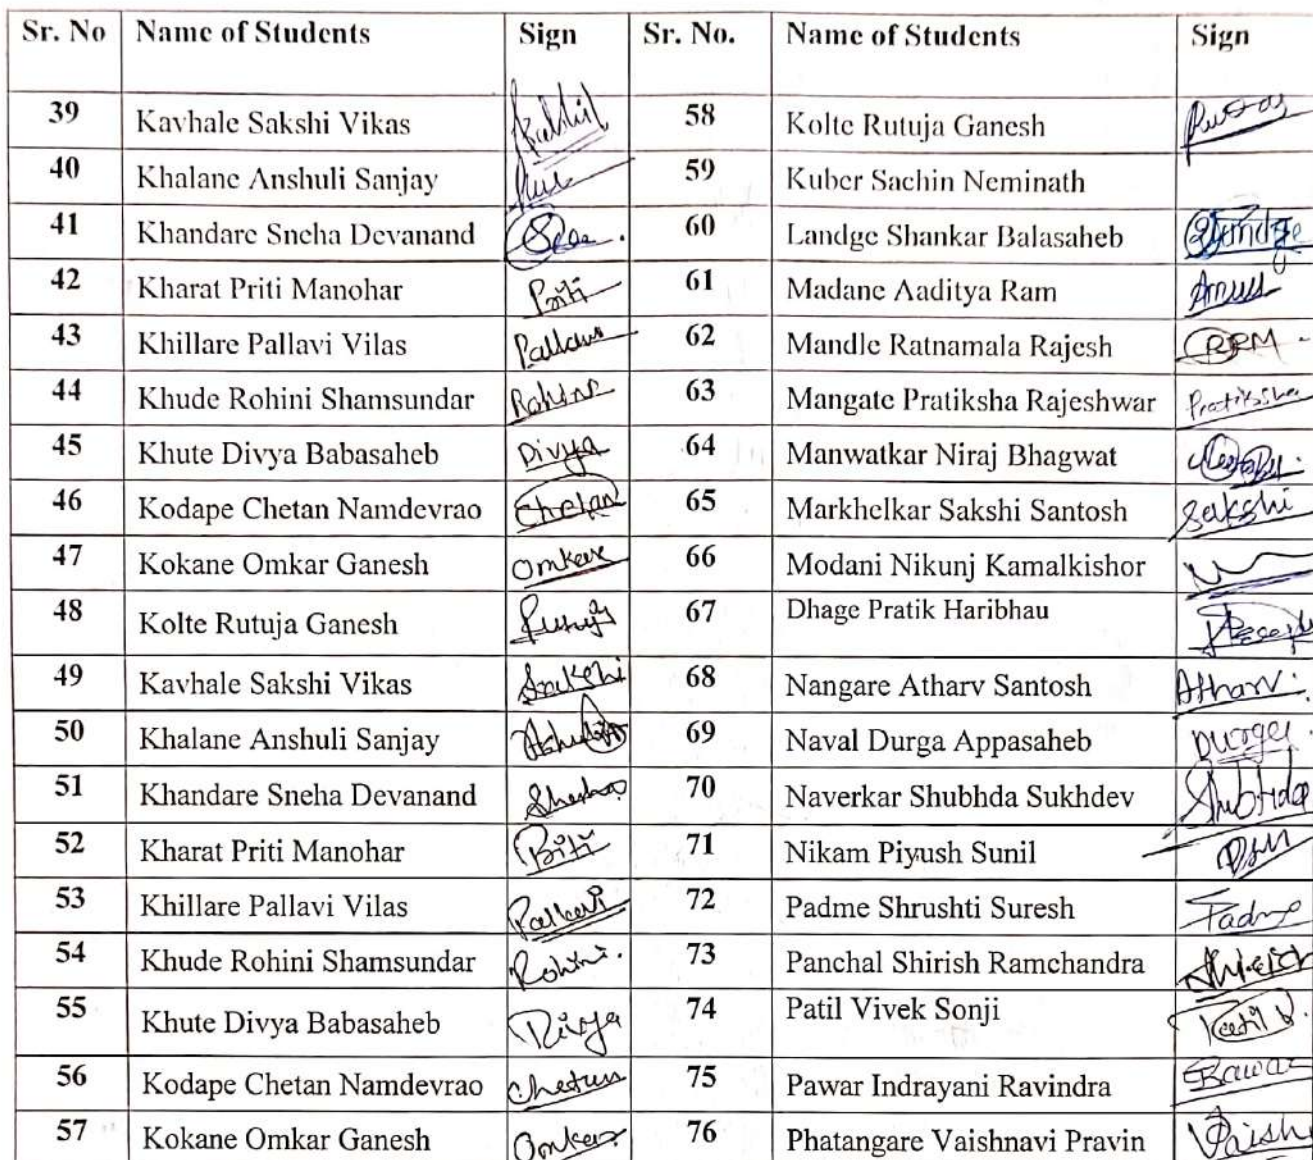 Sr. No Name of Students Sign Sr. No. Name of Students Sign
39 Kavhale Sakshi Vikas 58 Kolte Rutuja Ganesh
40 Khalane Anshuli Sanjay 59 Kuber Sachin Neminath
41 Khandare Sneha Devanand 60 Landge Shankar Balasaheb
42 Kharat Priti Manohar Priti 61 Madane Aaditya Ram
43 Khillare Pallavi Vilas 62 Mandle Ratnamala Rajesh RRM
44 Khude Rohini Shamsundar Rohini 63 Mangate Pratiksha Rajeshwar Pratiksha
45 Khute Divya Babasaheb Divya 64 Manwatkar Niraj Bhagwat
46 Kodape Chetan Namdevrao Chetan 65 Markhelkar Sakshi Santosh Sakshi
47 Kokane Omkar Ganesh Omkar 66 Modani Nikunj Kamalkishor
48 Kolte Rutuja Ganesh 67 Dhage Pratik Haribhau
49 Kavhale Sakshi Vikas Sakshi 68 Nangare Atharv Santosh Atharv
50 Khalane Anshuli Sanjay 69 Naval Durga Appasaheb Durga
51 Khandare Sneha Devanand 70 Naverkar Shubhda Sukhdev
52 Kharat Priti Manohar Priti 71 Nikam Piyush Sunil
53 Khillare Pallavi Vilas Pallavi 72 Padme Shrushti Suresh Padme
54 Khude Rohini Shamsundar Rohini 73 Panchal Shirish Ramchandra
55 Khute Divya Babasaheb Divya 74 Patil Vivek Sonji
56 Kodape Chetan Namdevrao Chetan 75 Pawar Indrayani Ravindra
57 Kokane Omkar Ganesh Omkar 76 Phatangare Vaishnavi Pravin